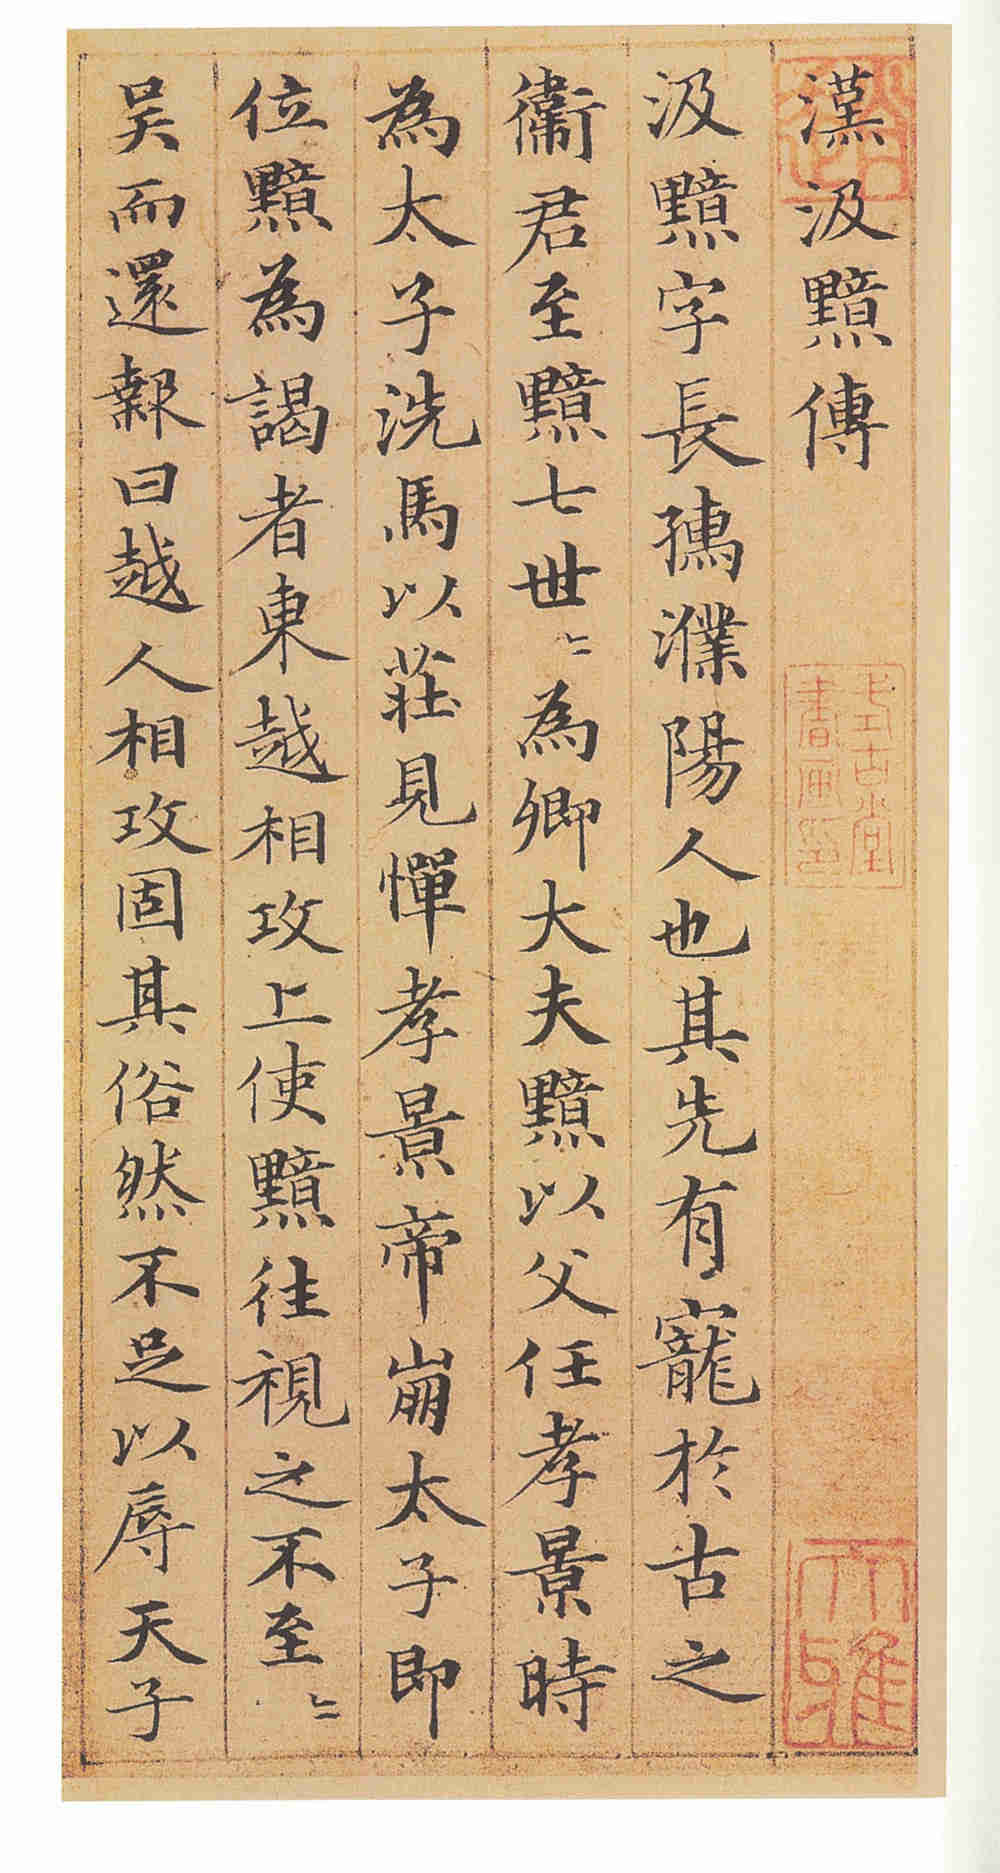 漢汲黯傳
式古堂書畫印
大雅
汲黯字長孺濮陽人也其先有寵於古之
衛君至黯七世〻為卿大夫黯以父任孝景時
為太子洗馬以莊見憚孝景帝崩太子即
位黯為謁者東越相攻上使黯往視之不至〻
吳而還報曰越人相攻固其俗然不足以辱天子